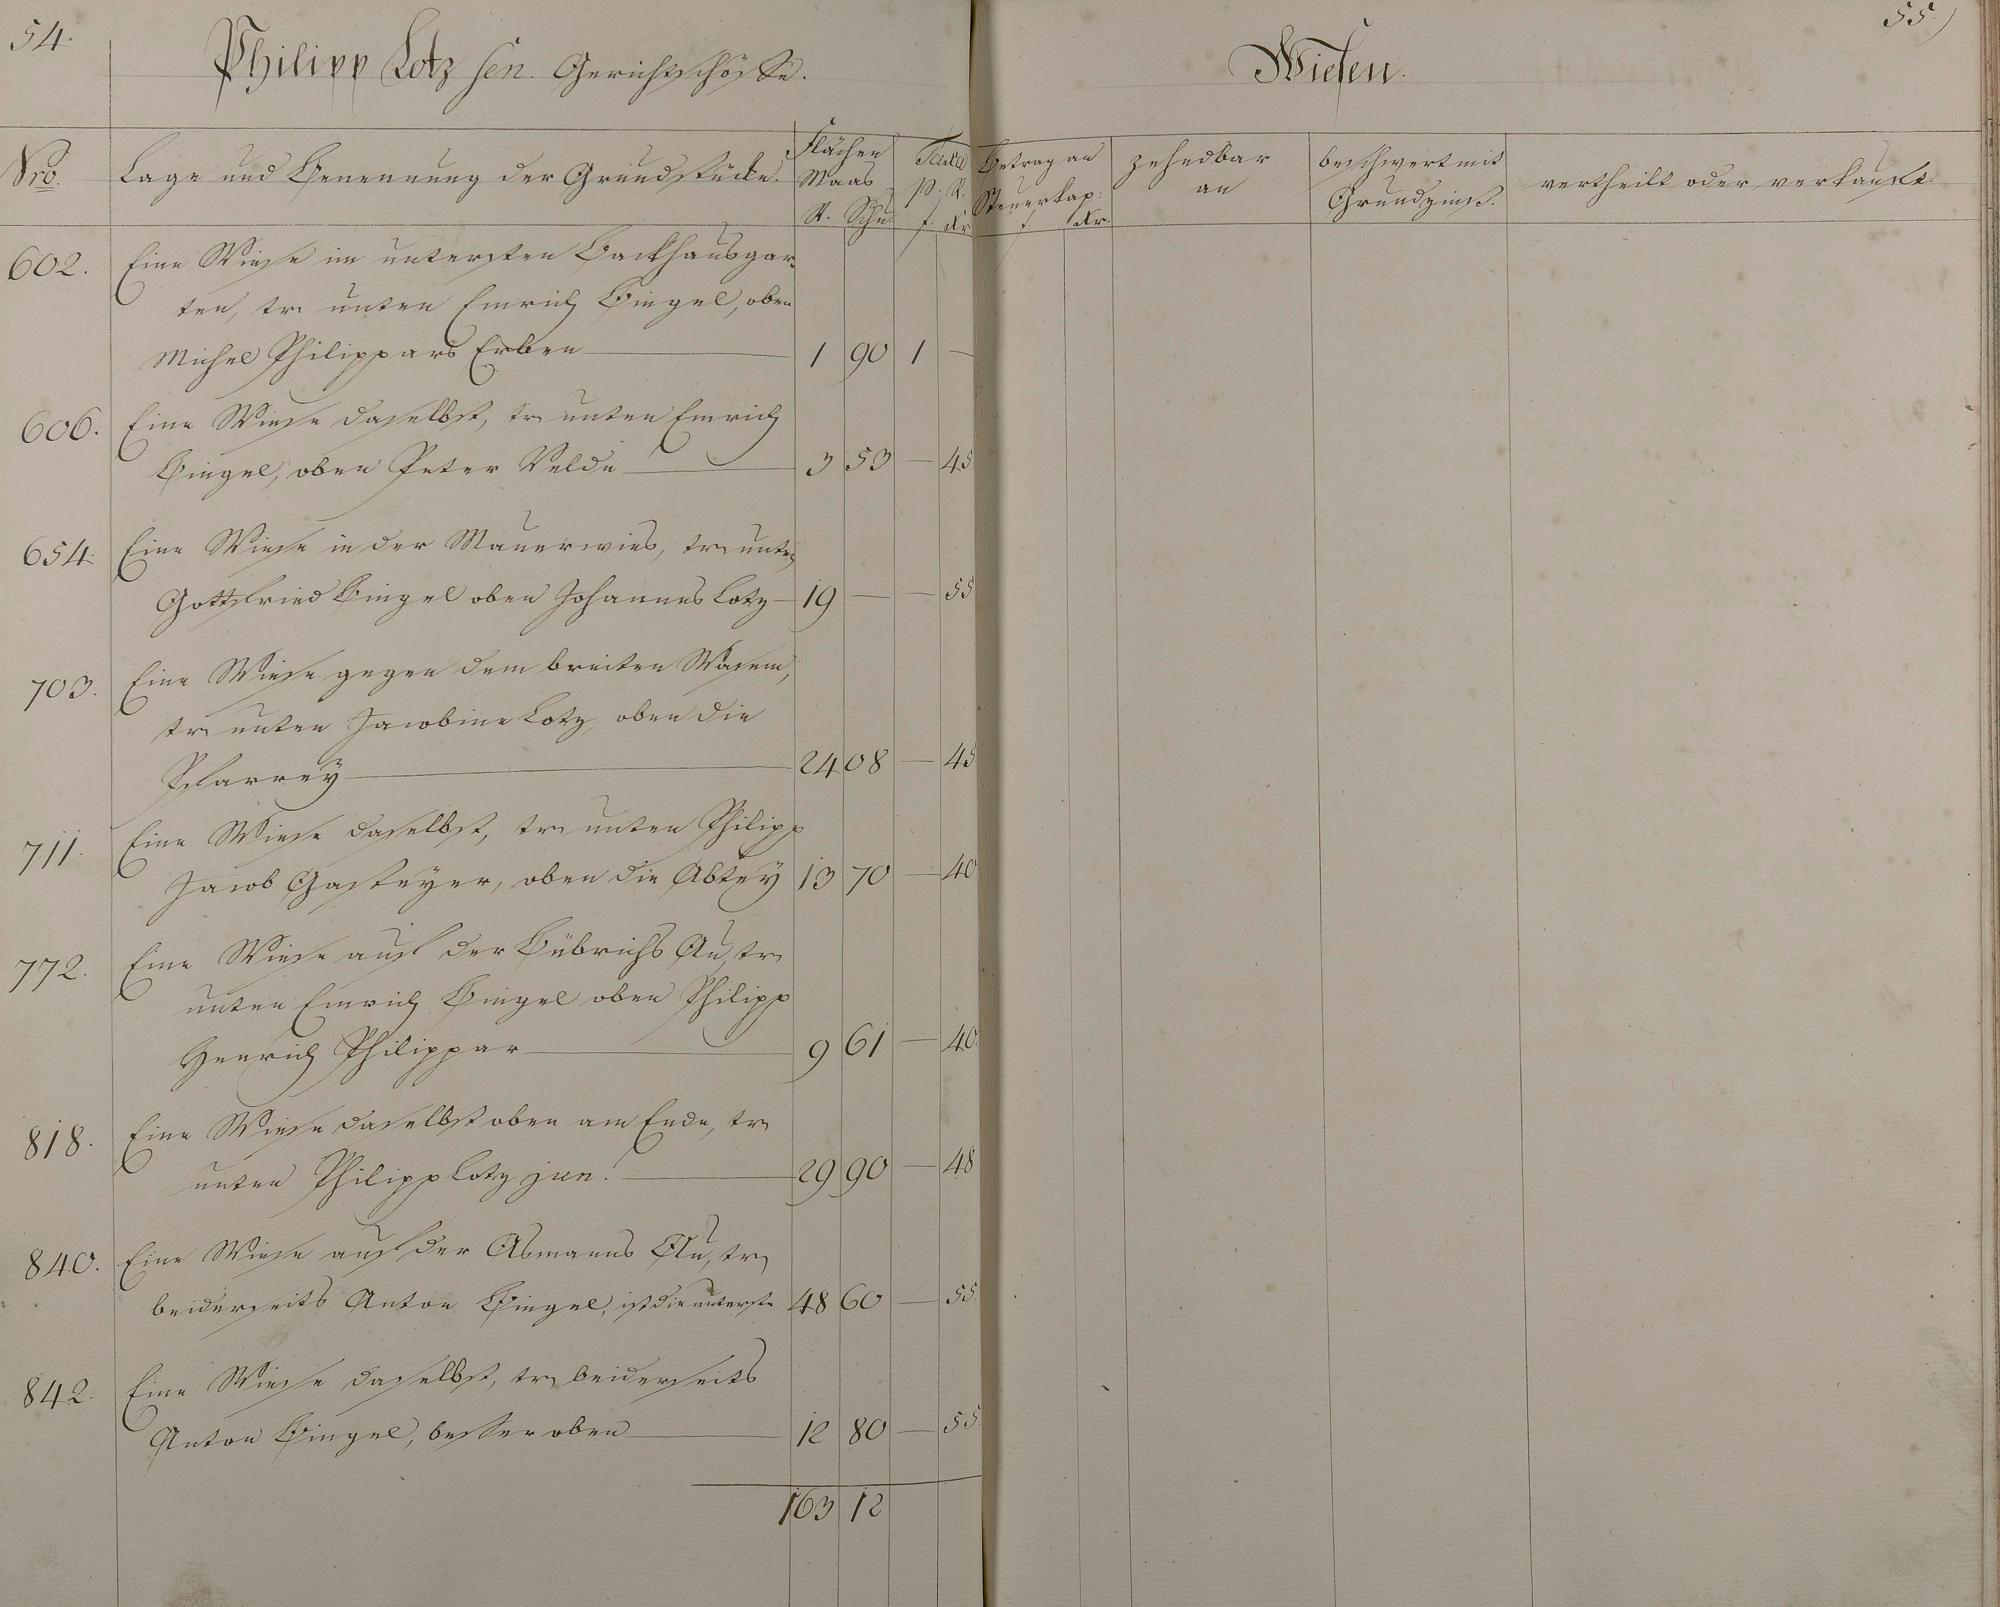 54.
Philipp Lotz sen. Gerichtschöffe.
Nro.
Lage und Benennung der Grundstücke.
Flächen Maas
R. Schu
Taxe
p. R.
f. Xr
602. Eine Wiese im untersten Backhausgar-
ten, tr. unten Emrich Bingel, oben
Michel Philippars Erben 1 90 1 —
606. Eine Wiese daselbst, tr. unten Emrich
Bingel, oben Peter Velde 3 53 — 45
654. Eine Wiese in der Mauerwies, tr. unten
Gottfried Bingel oben Johannes Lotz 19 — — 55
703. Eine Wiese gegen dem breiten Wasem,
tr. unten Jacobine Lotz oben die
Pfarrey 24 08 — 45
711. Eine Wiese daselbst, tr. unten Philipp
Jacob Gasteyer, oben die Abtey 13 70 — 40
772. Eine Wiese auf der Bübrichs Au, tr.
unten Emrich Bingel oben Philipp
Henrich Philippar 9 61 — 40
818. Eine Wiese daselbst oben am Ende, tr.
unten Philipp Lotz jun. 29 90 — 48
840. Eine Wiese auf der Asmanns Au, tr.
beiderseits Anton Bingel, ist die unterste 48 60 — 55
842. Eine Wiese daselbst, tr. beiderseits
Anton Bingel, besser oben 12 80 — 55
163 12
55.
Wiesen.
Betrag an
Steuerkap:
f Xr.
zehndbar
an
beschwert mit
Grundzinß.
vertheilt oder verkauft.